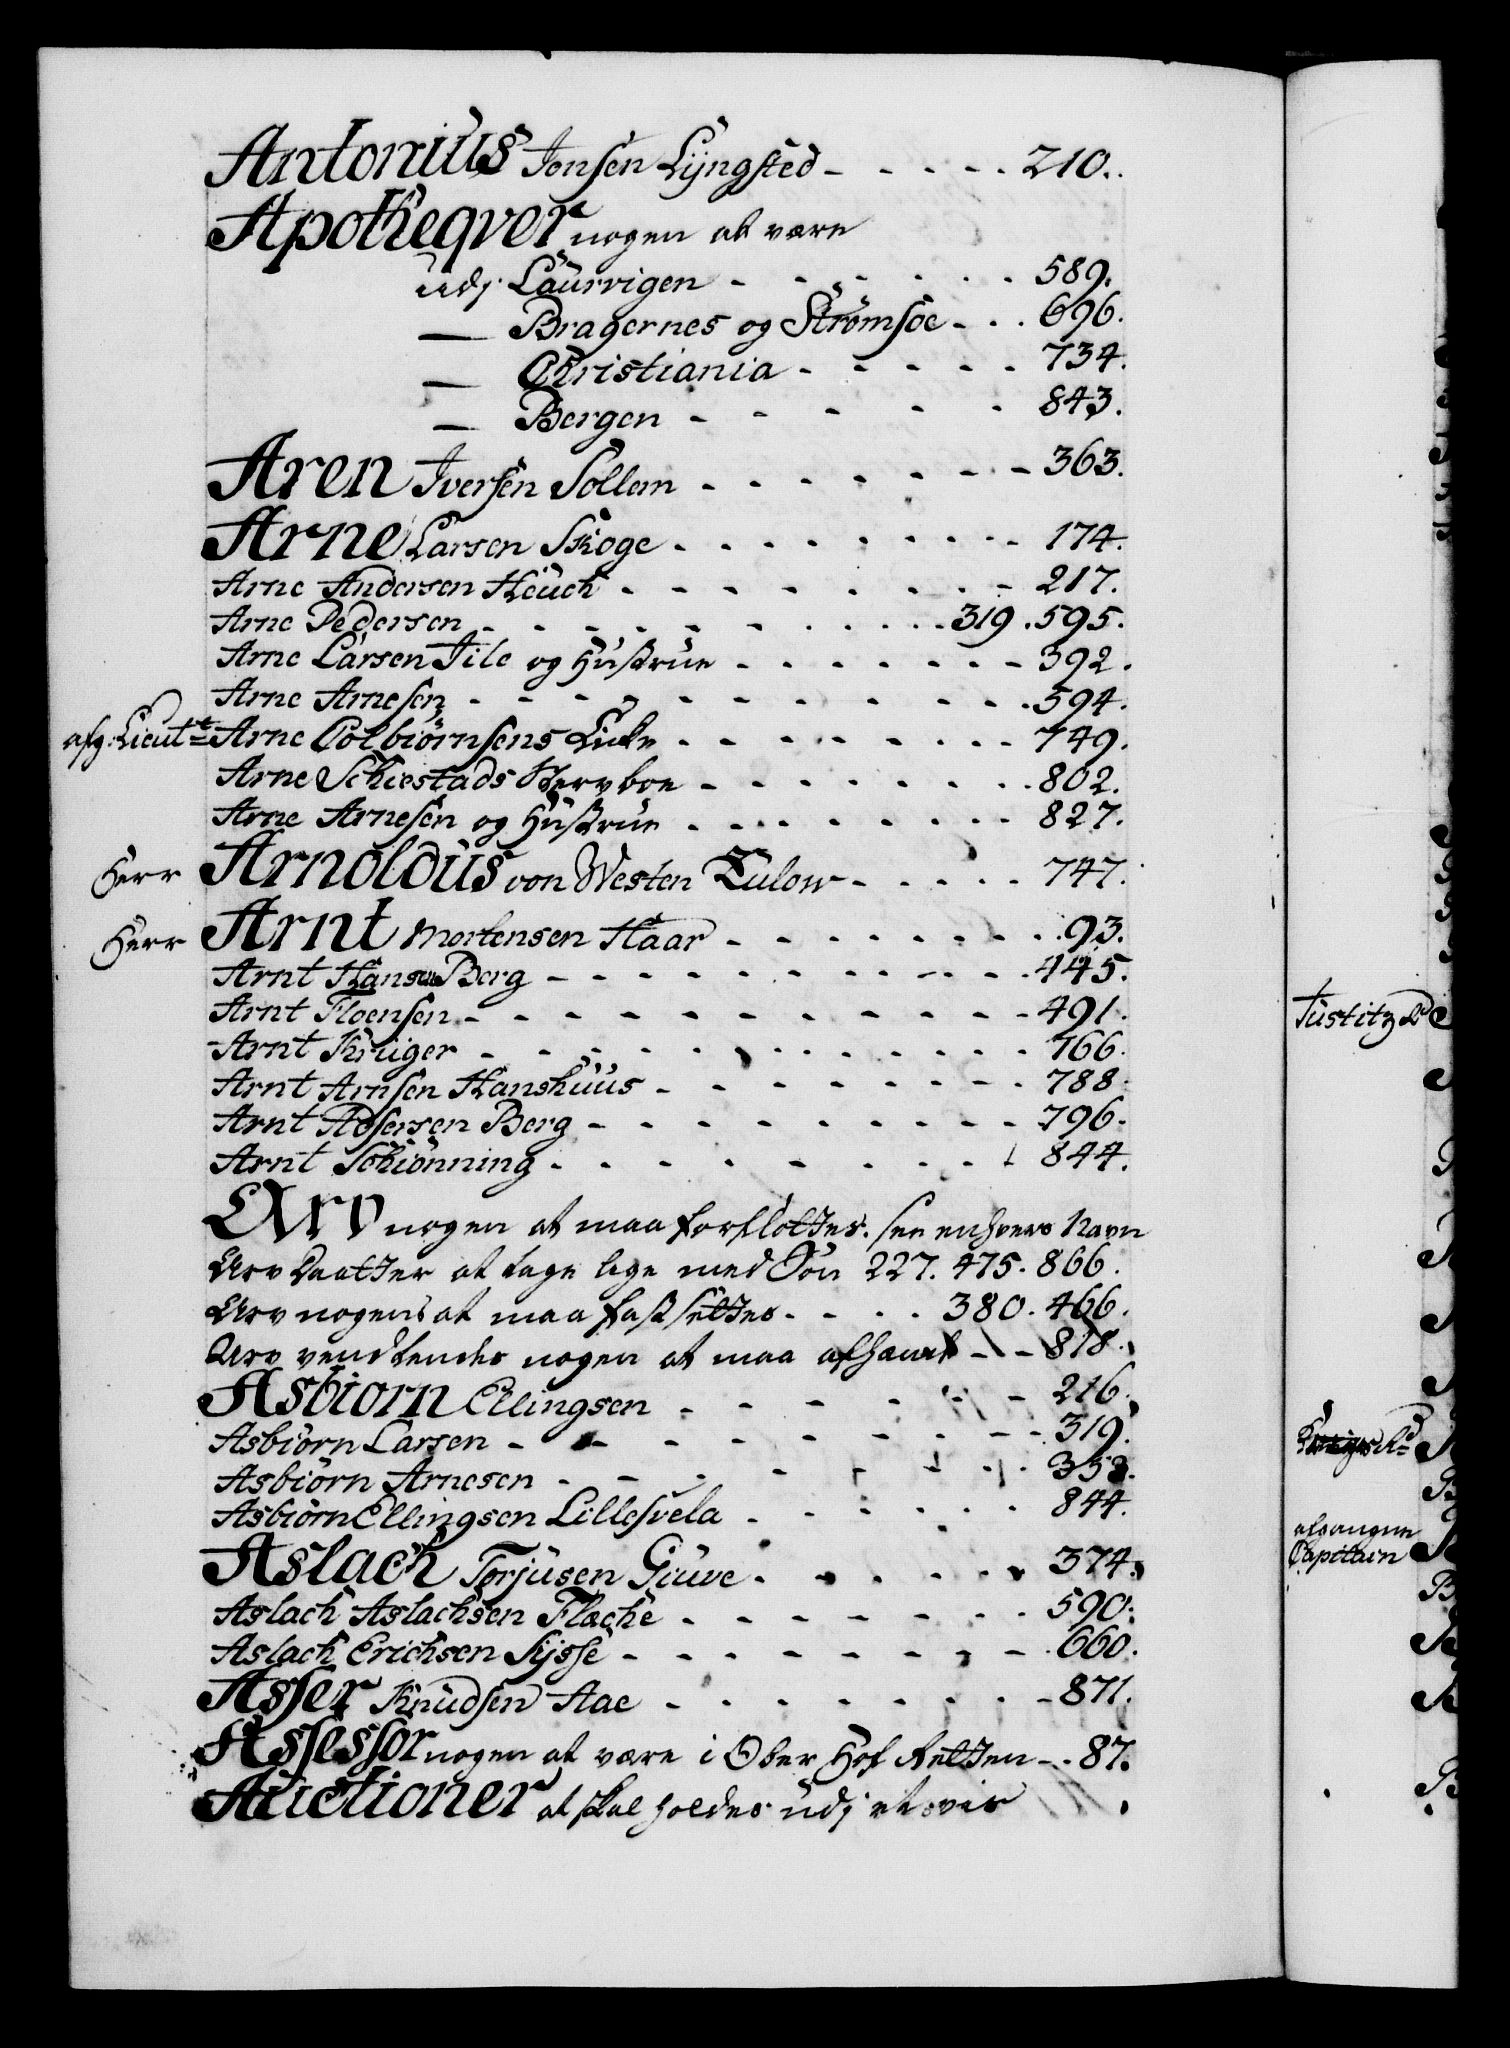 Antonius Jonsen Lyngsted - - - - - 210.
Apotheqver nogen at være
udj Laurvigen - - - - - - 589.
— Bragernes og Strømsöe - - - 696.
— Christiania - - - - - 734.
— Bergen - - - - - 843.
Aren Iversen Sollem - - - - - - - 363.
Arne Larsen Skoge - - - - - - - - 174.
Arne Andersen Heuch - - - - - - - - 217.
Arne Pedersen - - - - - - - - - 319. 595.
Arne Larsen Tile og Hustrue - - - - - - - 392.
Arne Arnesen - - - - - - - - - - 594.
afg: Lieutt: Arne Colbiörnsens Enke - - - - - - - - 749.
Arne Schiestads Stervboe - - - - - - - - 802.
Arne Arnesen og Hustrue - - - - - - - - 827.
Herr Arnoldus von Westen Tulow - - - - - 747.
Herr Arnt Mortensen Haar - - - - - - - - 93.
Arnt Hansen Berg - - - - - - - - - - 445.
Arnt Floensen - - - - - - - - - - - 491.
Arnt Krüger - - - - - - - - - - 766.
Arnt Arnsen Hanshuus - - - - - - - - 788.
Arnt Adsersen Berg - - - - - - - - - 796.
Arnt Schiønning - - - - - - - - 844.
Arv nogen at maa forfløttes. see enhvers Navn
Arv Daatter at tage lige med Søn 227. 475. 866.
Arv nogens at maa fastsættes - - - - 380. 466.
Arv ventendes nogen at maa afhændt - - 818.
Asbiorn Ellingsen - - - - - - 216.
Asbiörn Larsen - - - - - - - - - 319.
Asbiörn Arnesen - - - - - - - - 353.
Asbiörn Ellingsen Lillesvela - - - - - - 844.
Aslach Torjusen Giuve - - - - - - 374.
Aslach Aslachsen Flache - - - - - - - - 590.
Aslach Erichsen Sysse - - - - - - - - 660.
Asser Knudsen Aae - - - - - - - - 871.
Assessor nogen at være i Ober Hof Retten - - 87.
Auctioner at skal holdes udj et vis
Justitz R
afgangne
Capitain